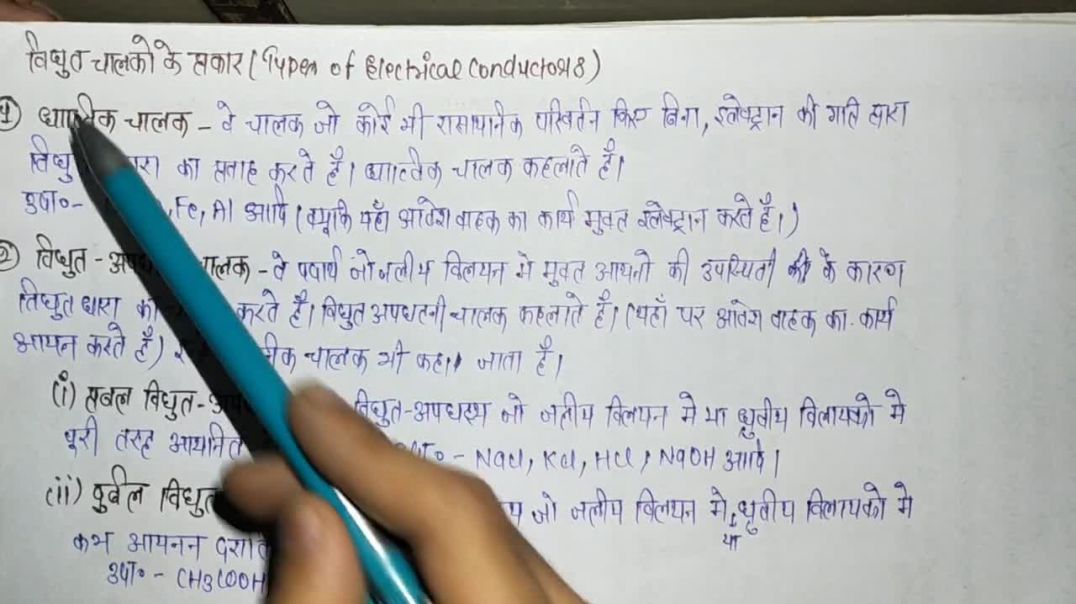 विधुत चालको के प्रकार (Types of Electrical Conductors)
① धात्विक चालक - वे चालक जो कोई भी रासायनिक परिवर्तन किए बिना, इलेक्ट्रान की गति द्वारा
का प्रवाह करते है। धात्विक चालक कहलाते है।
उदा०- , Fe, Al आदि (क्यूकि यहाँ आवेश वाहक का कार्य मुक्त इलेक्ट्रान करते है।)
② विधुत - चालक - वे पदार्थ जो जलीय विलयन मे मुक्त आयनो की उपस्थिती के कारण
विधुत धारा का करते है। विधुत अपघटनी चालक कहलाते है। (यहाँ पर आवेश वाहक का कार्य
आयन करते है) चालक भी कहा जाता है।
(i) प्रबल विधुत- विधुत-अपघट्य जो जलीय विलयन मे या ध्रुवीय विलायको मे
पूरी तरह आयनित - NaCl, KCl, HCl, NaOH आदि।
(ii) दुर्बल विधुत जो जलीय विलयन मे या ध्रुवीय विलायको मे
कम आयनन
उदा०- CH3COOH